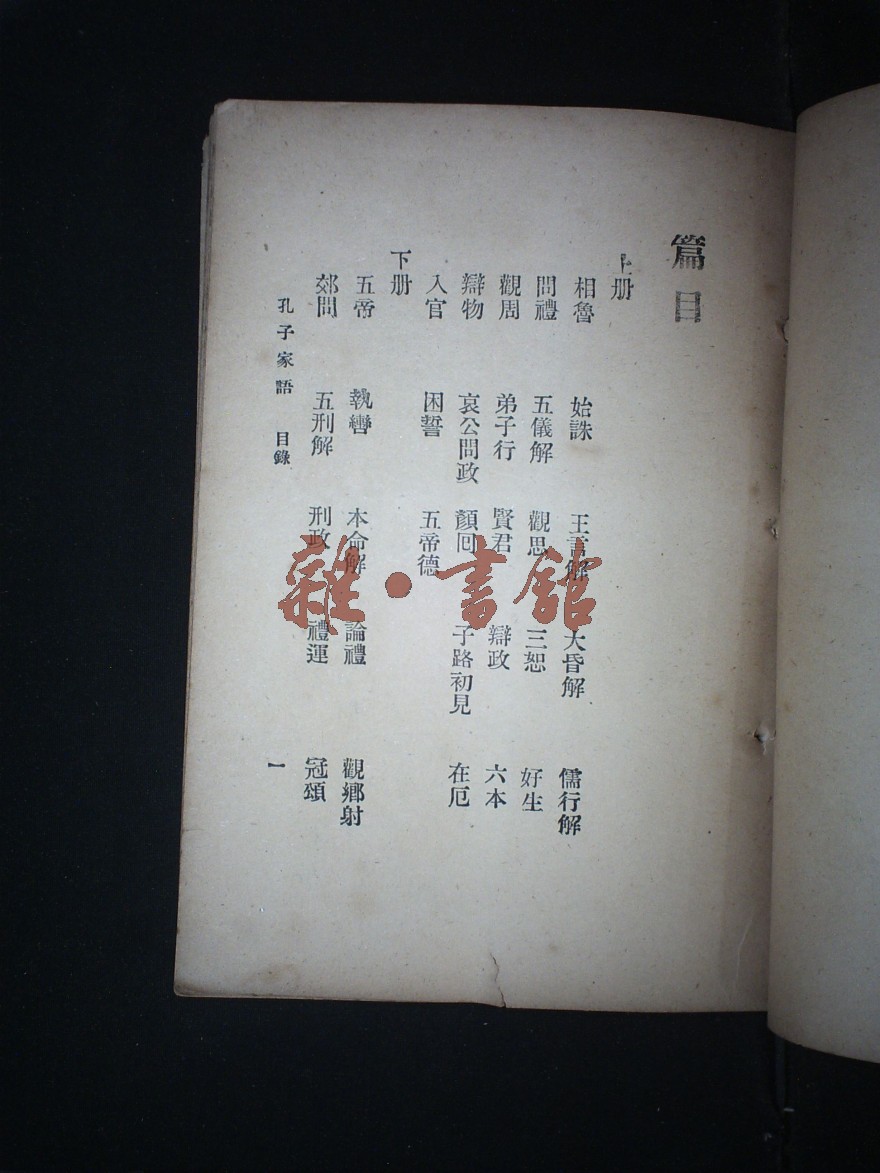 篇目
上册
相魯 始誅 王言解 大昏解 儒行解
問禮 五儀解 觀思 三恕 好生
觀周 弟子行 賢君 辯政 六本
辯物 哀公問政 顏回 子路初見 在厄
入官 困誓 五帝德
下册
五帝 執轡 本命解 論禮 觀鄉射
郊問 五刑解 刑政 禮運 冠頌
孔子家語 目錄 一
雜·書館